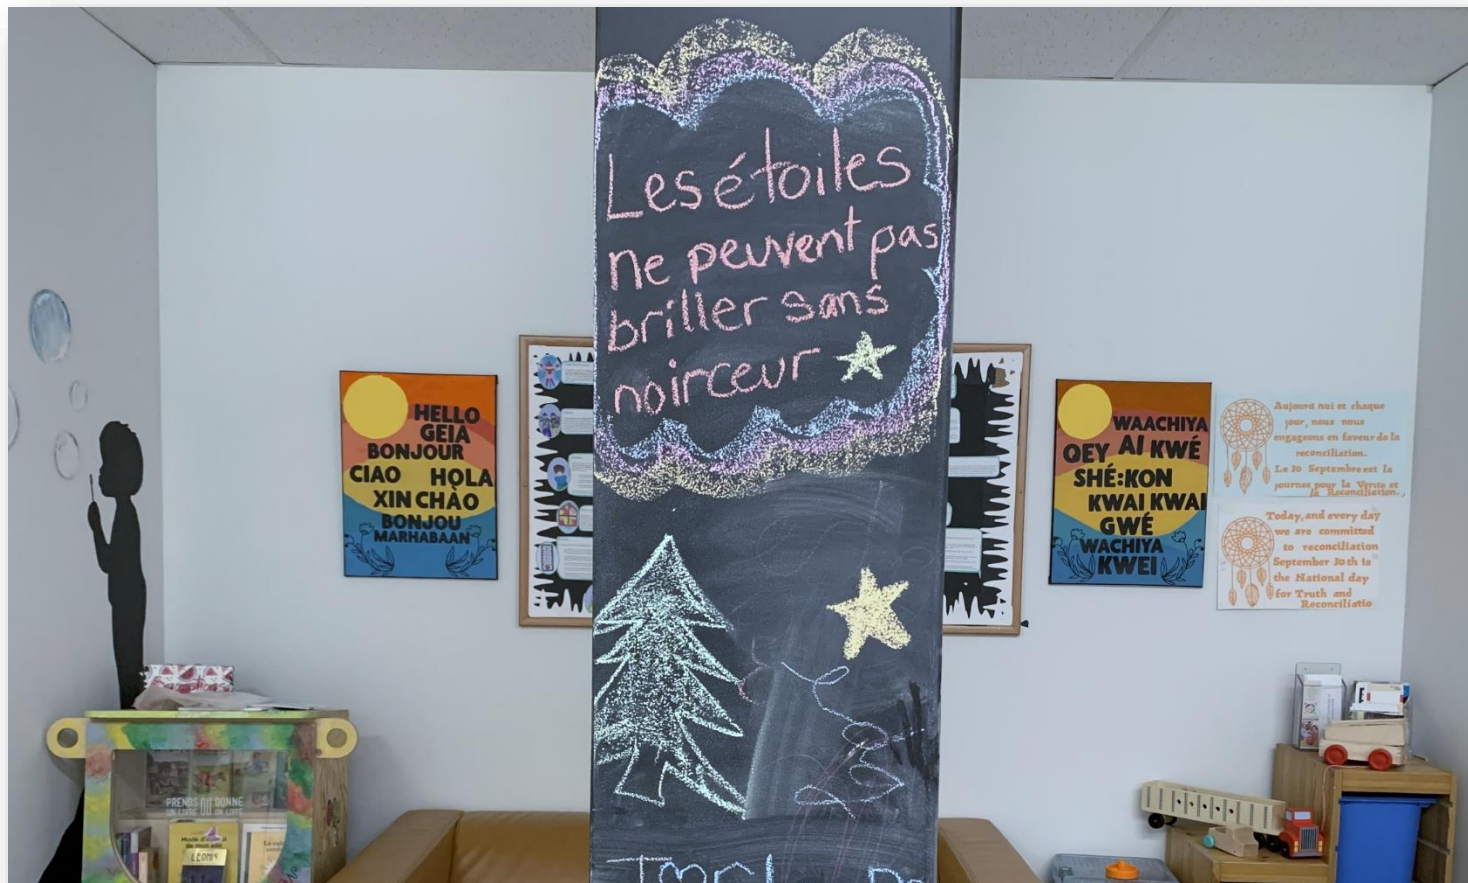 Les étoiles
ne peuvent pas
briller sans
noirceur
HELLO
GEIA
BONJOUR
CIAO HOLA
XIN CHÀO
BONJOU
MARHABAAN
WAACHIYA
QEY AI KWÉ
SHÉ:KON
KWAI KWAI
GWÉ
WACHIYA
KWEI
Aujourd hui et chaque
jour, nous nous
engageons en faveur de la
reconciliation.
Le 30 Septembre est la
journee pour la Verite et
la Reconciliation.
Today, and every day
we are committed
to reconciliation
September 30th is
the National day
for Truth and
Reconciliatio
PRENDS OU DONNE
UN LIVRE UN LIVRE